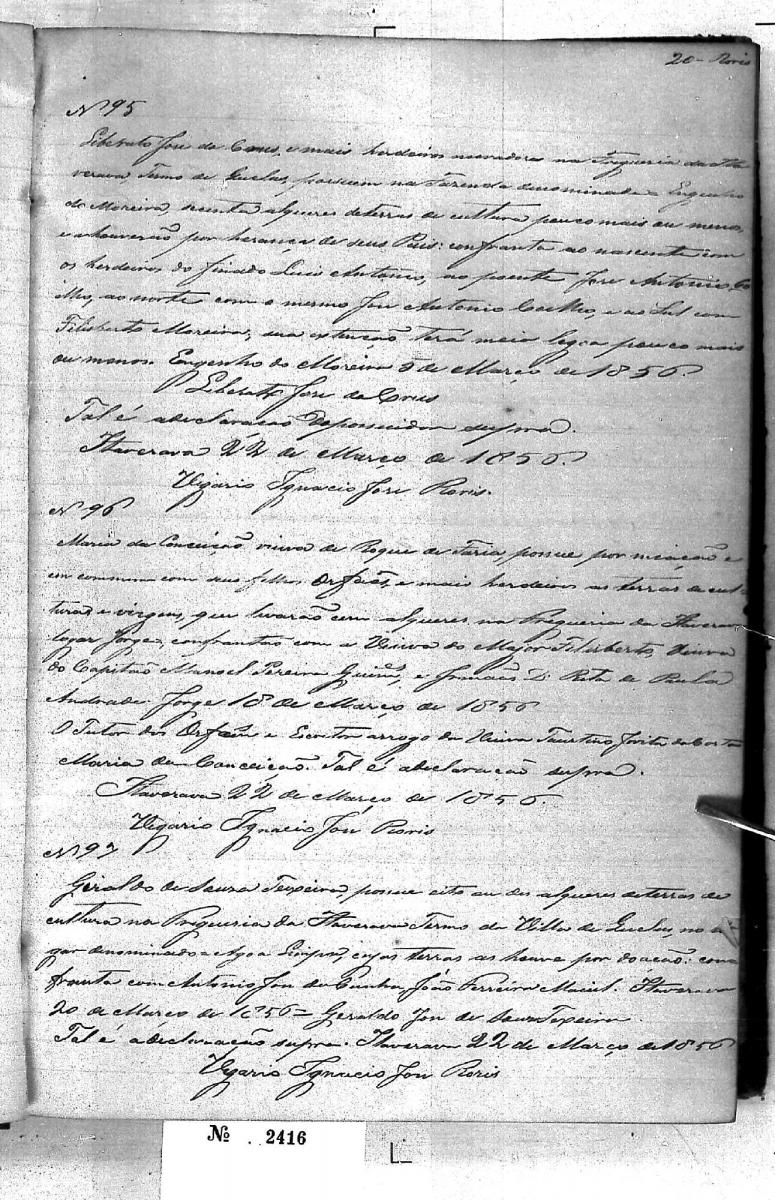 20 - Roris
Nº 95
Liberato Jose da Crus, e mais herdeiros moradores na Fregueria da Ita
verava, Termo de Quelus, possuem na Fazenda denominada = Engenho
do Moreira, alqueres de terras de cultura pouco mais ou menos,
e as houverão por herança de seus Pais: confranta ao nascente com
os herdeiros do finado Luis Antonio, ao poente Jose Antonio Co
lho, ao norte com o mesmo Jose Antonio Coelho, e ao Sul com
Felisberto Moreira, sua extenção terá meia legoa pouco mais
ou menos. Engenho do Moreira 5 de Março de 1856
Liberato Jose da Crus
Tal é a declaração do possuidor supra.
Itaverava 22 de Março de 1856.
Vigario Ignacio Jose Roris.
Nº 96
Maria da Conceição, viuva de Roque de Faria, possue por meiação e
em commum com seus filhos Orfãos, e mais herdeiros as terras de cul
turas e virgens, que levarão cem alqueres na Fregueria da Itaverava
lugar Jorge, confrantão com a Viuva do Major Felisberto, Viuva
do Capitão Manoel Pereira Guims, e Irmaons D. Rita de Paula
Andrade. Jorge 18 de Março de 1856
O Tutor dos Orfãos e Escrito arrogo da Viuva Faustino da Costa
Maria da Conceição. Tal é a declaração supra.
Itaverava 22 de Março de 1856.
Vigario Ignacio Jose Roris
Nº 97
Geraldo de Souza Texeira, possue oito ou des alqueres de terras de
cultura na Fregueria da Itaverava Termo da Villa de Quelus, no lu
gar denominado = Agoa Limpa, cujas terras as houve por doação: con
franta com Antonio Jose da Cunha, João Ferreira Maciel. Itaverava
20 de Março de 1856 = Geraldo Jose de Souza Texeira.
Tal é a declaração supra. Itaverava 22 de Março de 1856
Vigario Ignacio Jose Roris
Nº 2416